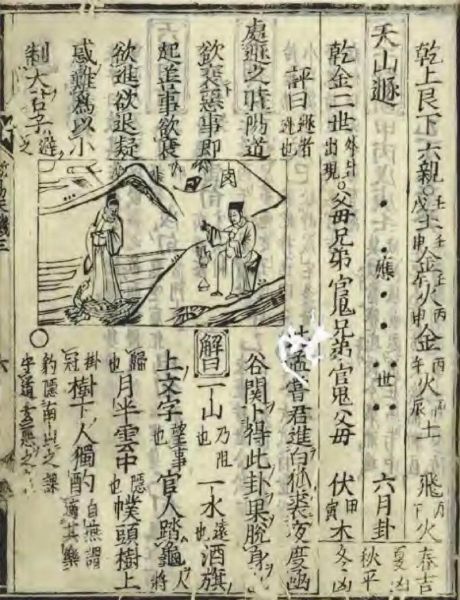 乾上艮下六親。戌壬土申壬金午壬火申丙金午丙火辰丙土 飛丙火 春吉
天山遯 應 世 六月卦 夏凶 秋平
乾金二世外卦出現。父母兄弟官鬼兄弟官鬼父母 伏甲寅木 冬凶
評曰遯者遯也
處遯之時陽道
欲衰惡事即
起善事欲衰
欲進欲退疑
惑難為以小
制大君子遯
孟嘗君進白狐裘夜度凾
谷關卜得此卦果脫身
解曰一山乃阻也一水遠也酒旗
上文字望事也官人踏龜人將
歸也月半雲中隱也幞頭樹上
掛冠樹下人獨酌自無謂適其樂
豹隱南山之課
守道去惡之
六